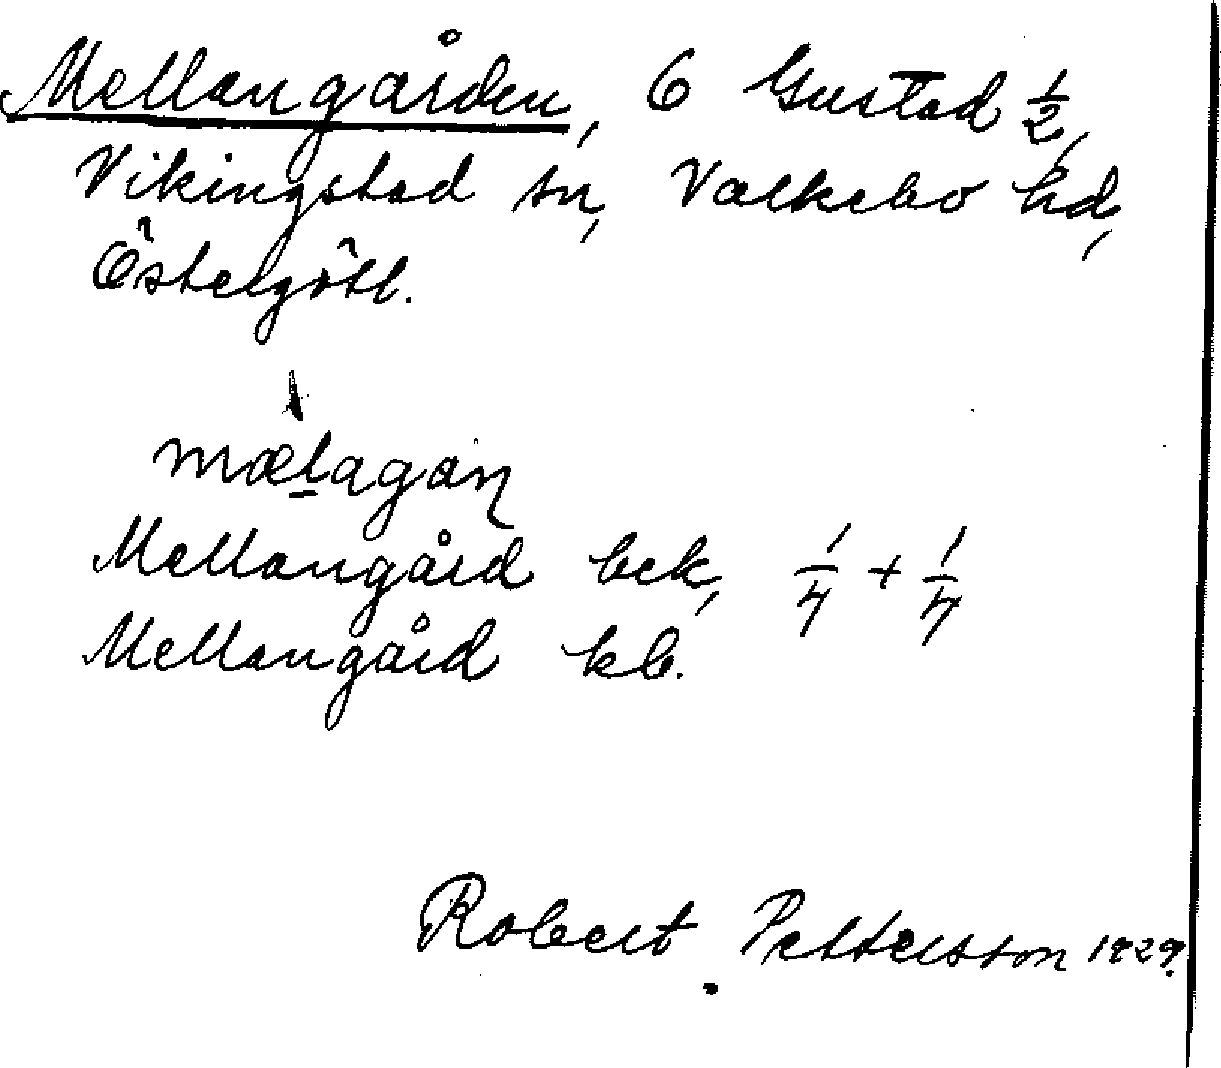 Mellangården, 6 Gustad 1/2,
Vikingstad sn, Valkebo hd,
Östergötl.
mælagaṇ
Mellangård bek, 1/4 + 1/4
Mellangård kb.
Robert Pettersson 1929.